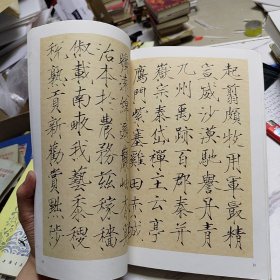 起翦頗牧用軍最精
宣威沙漠馳譽丹青
九州禹跡百郡秦并
嶽宗泰岱禪主云亭
鴈門紫塞雞田赤
治本於農務茲稼穡
俶載南畝我藝黍稷
稅熟貢新勸賞黜陟